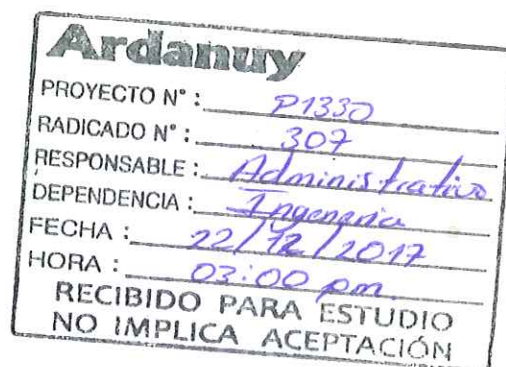 Ardanuy
PROYECTO N° : P1330
RADICADO N° : 307
RESPONSABLE : Administrativo
DEPENDENCIA : Ingenería
FECHA : 22/12/2017
HORA : 03:00 pm.
RECIBIDO PARA ESTUDIO
NO IMPLICA ACEPTACIÓN